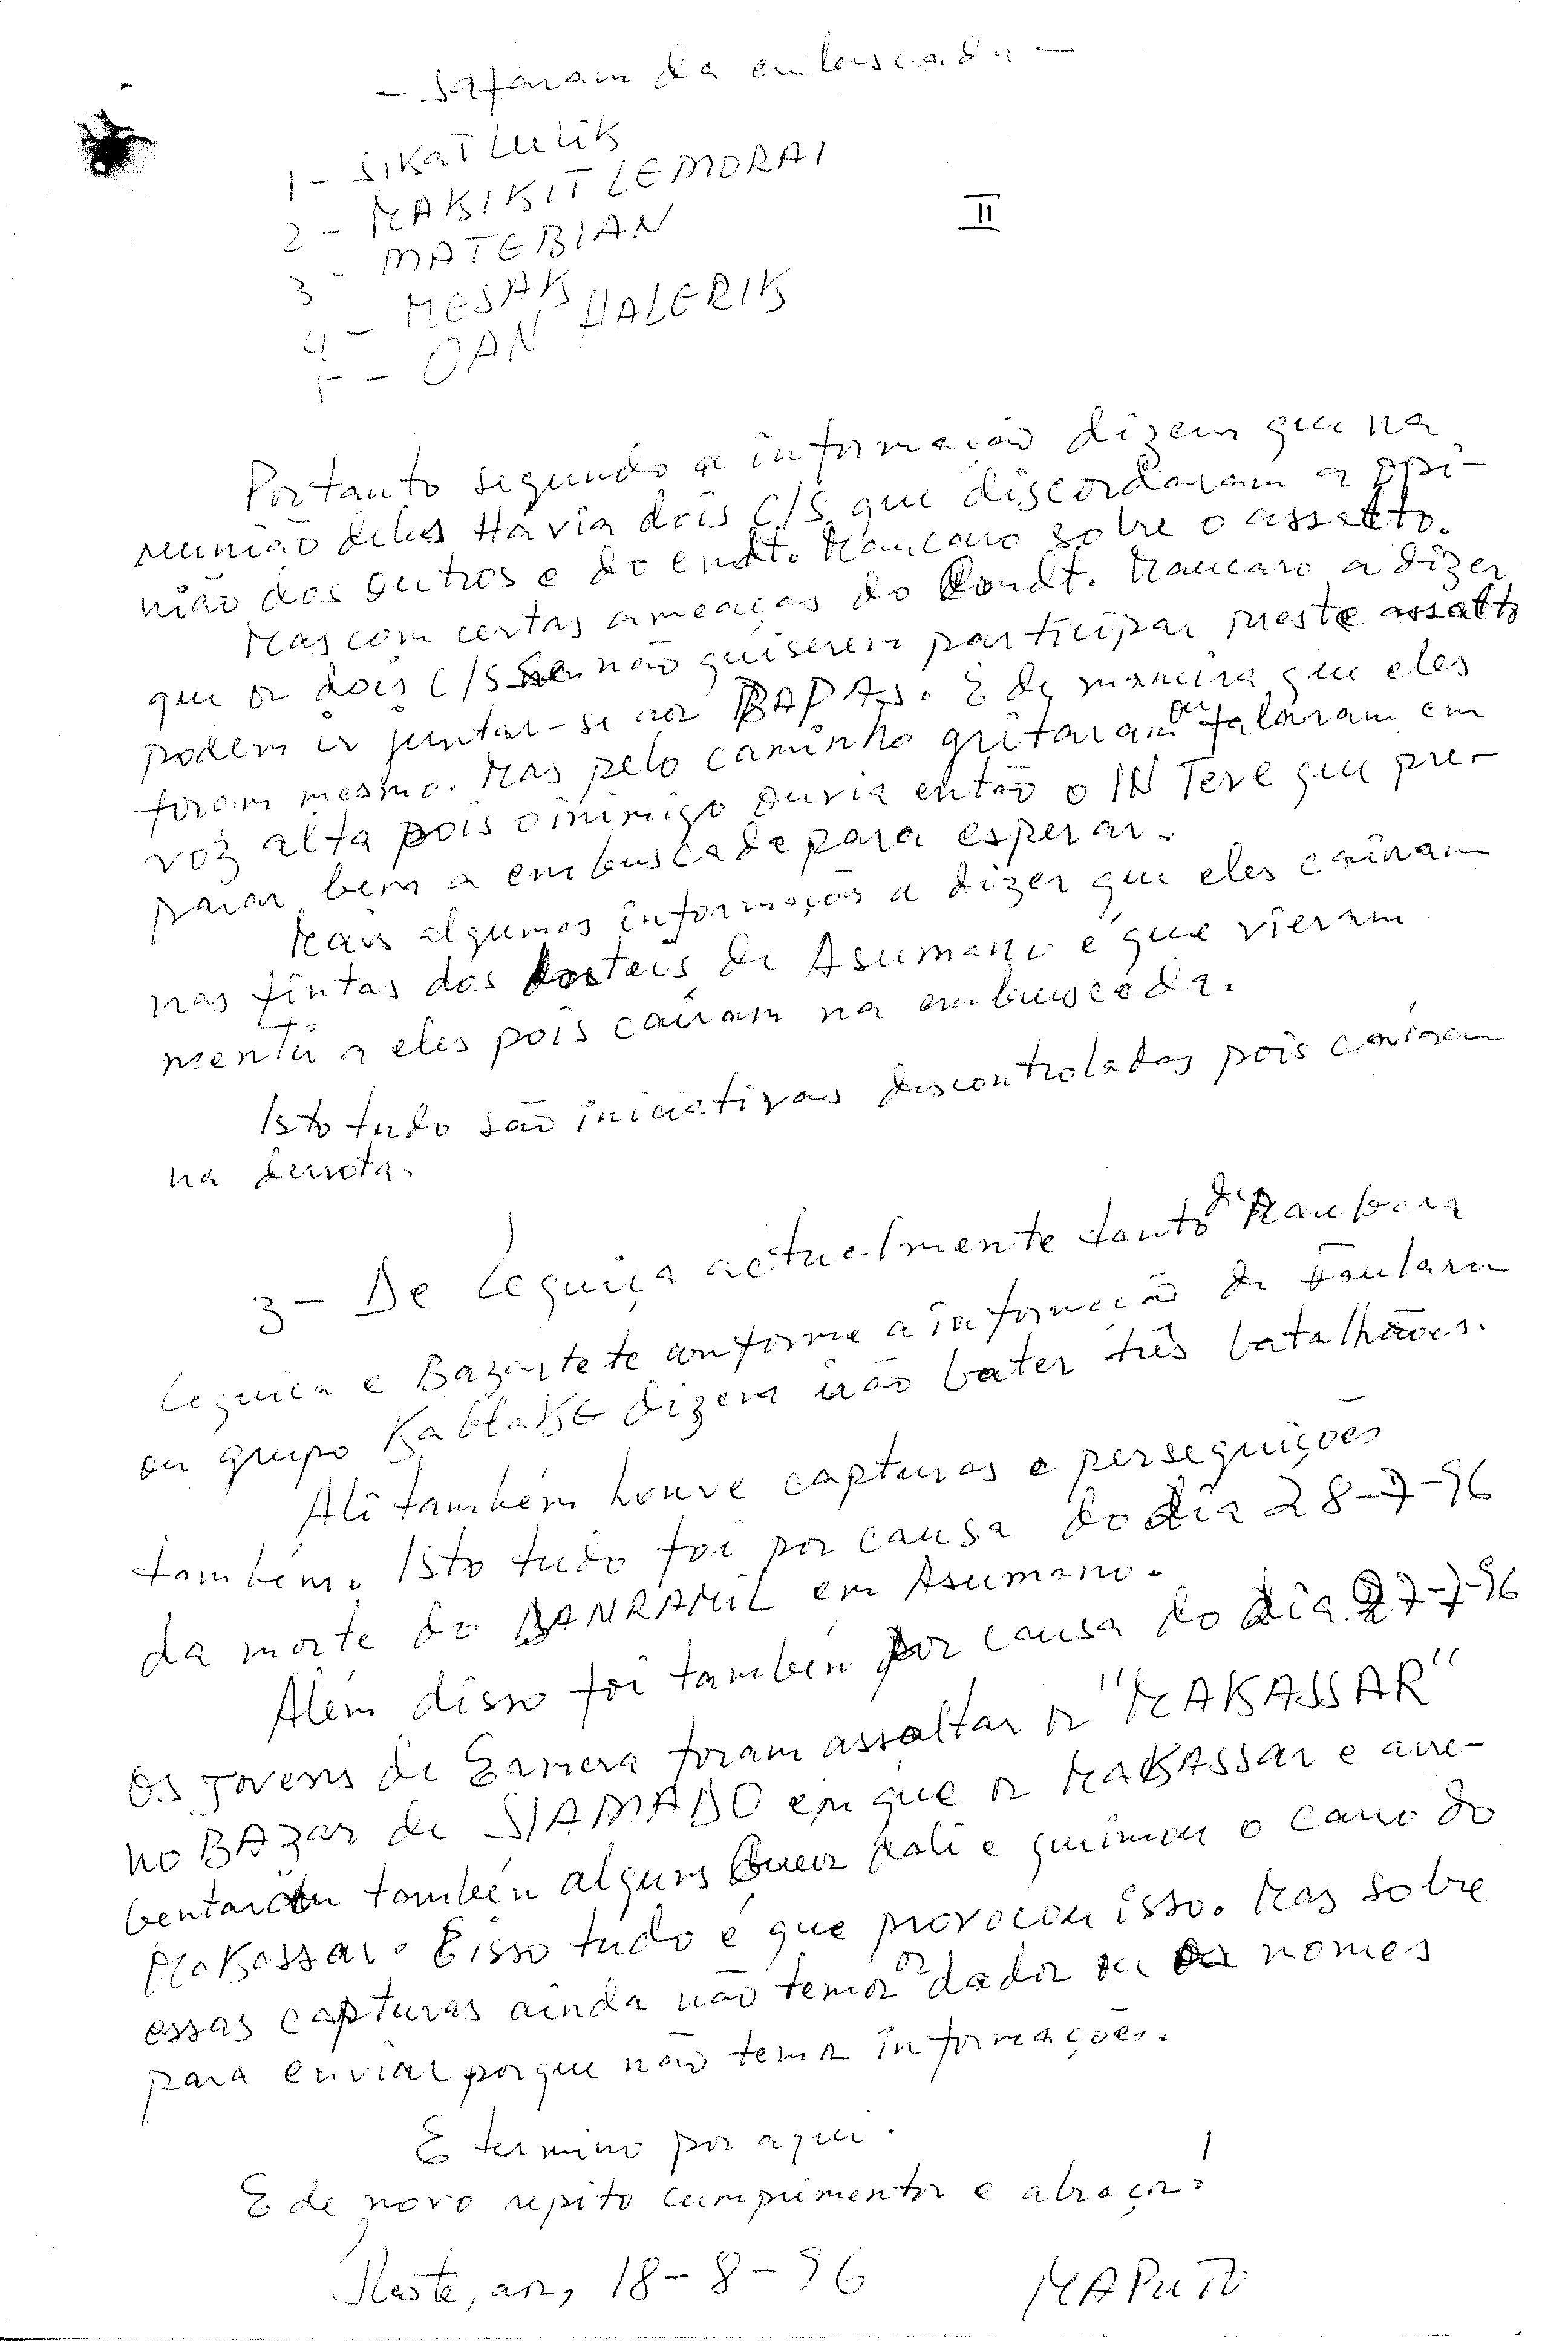 - Safaram da embuscada -
1 - SIKAT LULIK
2 - MAKIKIT LEMORAI
II
3 - MATEBIAN
4 - MESAK
5 - OAN HALERIK
Portanto segundo a informação dizem que na
reunião deles Havia dois C/S que discordaram a opi-
nião dos outros e do cmdt. Maucaro sobre o assalto.
Mas com certas ameaças do Comdt. Maucaro a dizer
que os dois C/S se não quiserem participar neste assalto
podem ir juntar-se aos BAPAS. E de maneira que eles
foram mesmo. Mas pelo caminho gritaram ou falaram em
voz alta pois o inimigo ouvia então o IN Teve que pre-
parar bem a embuscada para esperar.
Mais algumas informações a dizer que eles caíram
nas fintas dos de Asumano é que vieram
mentir a eles pois caíram na embuscada.
Isto tudo são iniciativas descontroladas pois caíram
na derrota.
3 - De Leguiça actualmente tanto de Maubara
Leguica e Bazartete conforme a informação de
ou grupo KablaKE dizem irão bater três batalhões.
Ali também houve capturas e perseguições
também. Isto tudo foi por causa do dia 28-7-96
da morte do DANRAMIL em Asumano.
Além disso foi também por causa do dia 27-7-96
Os jovens de Ermera foram assaltar os "MAKASSAR"
no BAzar de SIAMADO em que os MAKASSAR e arre-
bentaram também alguns dali e queimou o carro do
Makassar. E isso tudo é que provocou isso. Mas sobre
essas capturas ainda não temos os dados ou os nomes
para enviar porque não temos informações.
E termino por aqui.
E de novo repito cumprimentos e abraços!
Neste, aos, 18-8-96 MAPUTO